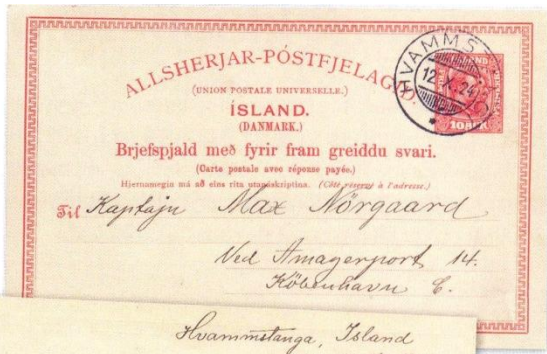 ALLSHERJAR-PÓSTFJELAGIÐ.
(UNION POSTALE UNIVERSELLE.)
ÍSLAND.
(DANMARK.)
Brjefspjald með fyrir fram greiddu svari.
(Carte postale avec réponse payée.)
Hjernamegin má að eins rita utanáskriptina. (Côté réservé à l'adresse.)
Til Kaptajn Max Nörgaard
Ved Amagerport 14.
Köbenhavn C.
HVAMMS
12.X.24
10 AUR
Hvammstanga, Island